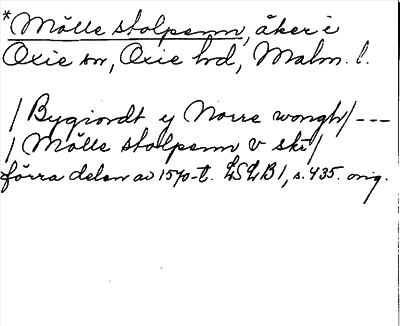 *Mölle stolpenn, åker i
Oxie sn, Oxie hd, Malm. l.
/ Bygiordt y Norre wongh/ ---
/ Mölle stolpenn v ski/
förra delen av 1570-t. LSLB1, s. 435. orig.